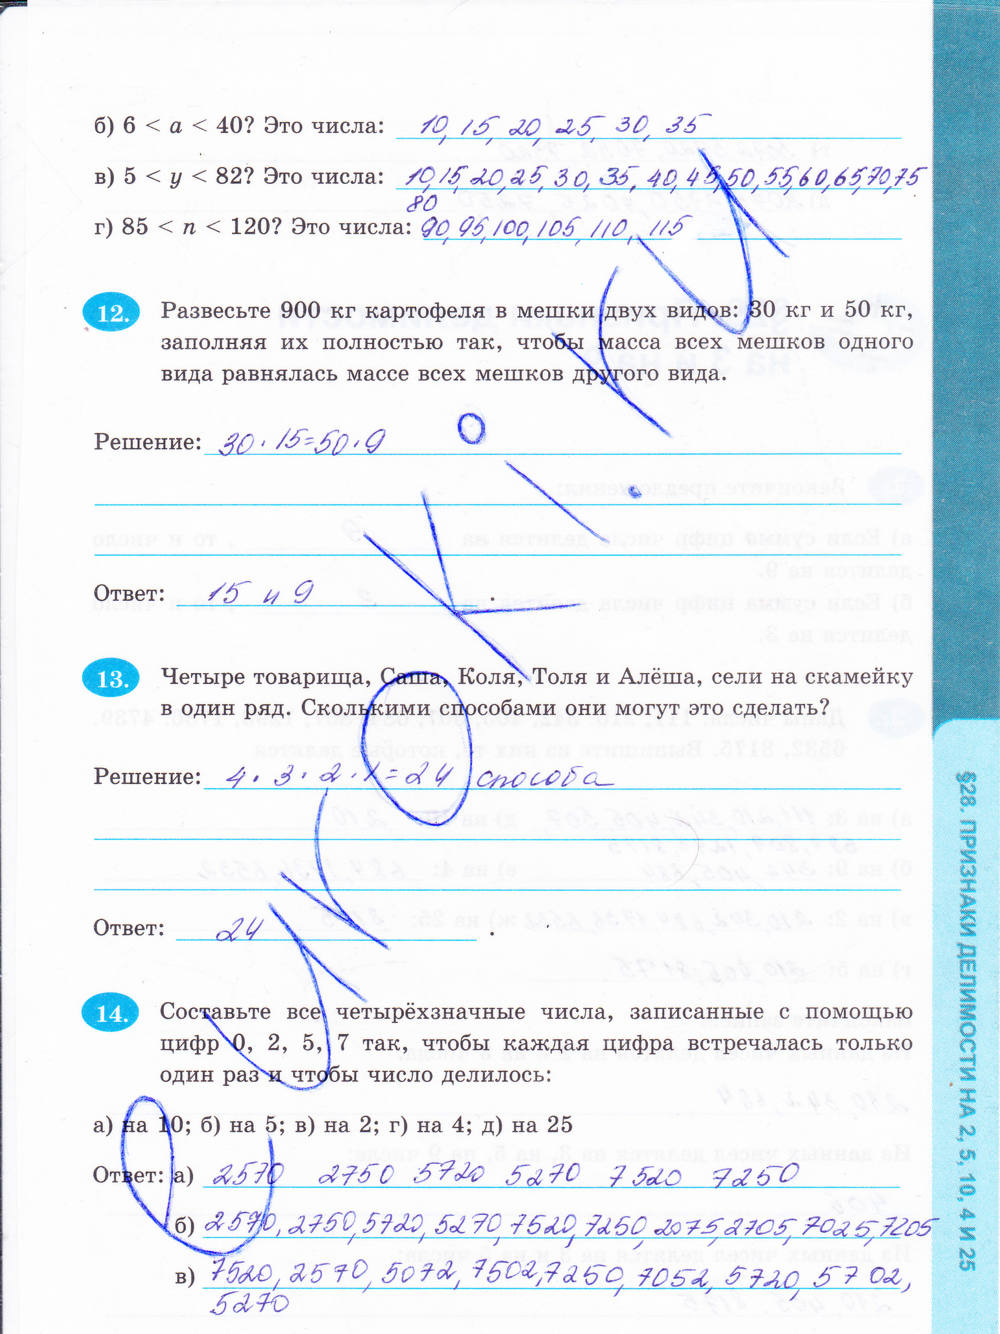 б) 6 < a < 40? Это числа: 10, 15, 20, 25, 30, 35
в) 5 < y < 82? Это числа: 10, 15, 20, 25, 30, 35, 40, 45, 50, 55, 60, 65, 70, 75
80
г) 85 < n < 120? Это числа: 90, 95, 100, 105, 110, 115
12. Развесьте 900 кг картофеля в мешки двух видов: 30 кг и 50 кг,
заполняя их полностью так, чтобы масса всех мешков одного
вида равнялась массе всех мешков другого вида.
Решение: 30 · 15 = 50 · 9
Ответ: 15 и 9 .
13. Четыре товарища, Саша, Коля, Толя и Алёша, сели на скамейку
в один ряд. Сколькими способами они могут это сделать?
Решение: 4 · 3 · 2 · 1 = 24 способа
Ответ: 24 .
14. Составьте все четырёхзначные числа, записанные с помощью
цифр 0, 2, 5, 7 так, чтобы каждая цифра встречалась только
один раз и чтобы число делилось:
а) на 10; б) на 5; в) на 2; г) на 4; д) на 25
Ответ: а) 2570 2750 5720 5270 7520 7250
б) 2570, 2750, 5720, 5270, 7520, 7250, 2075, 2705, 7025, 7205
в) 7520, 2570, 5072, 7502, 7250, 7052, 5720, 5702,
5270
§28. ПРИЗНАКИ ДЕЛИМОСТИ НА 2, 5, 10, 4 И 25